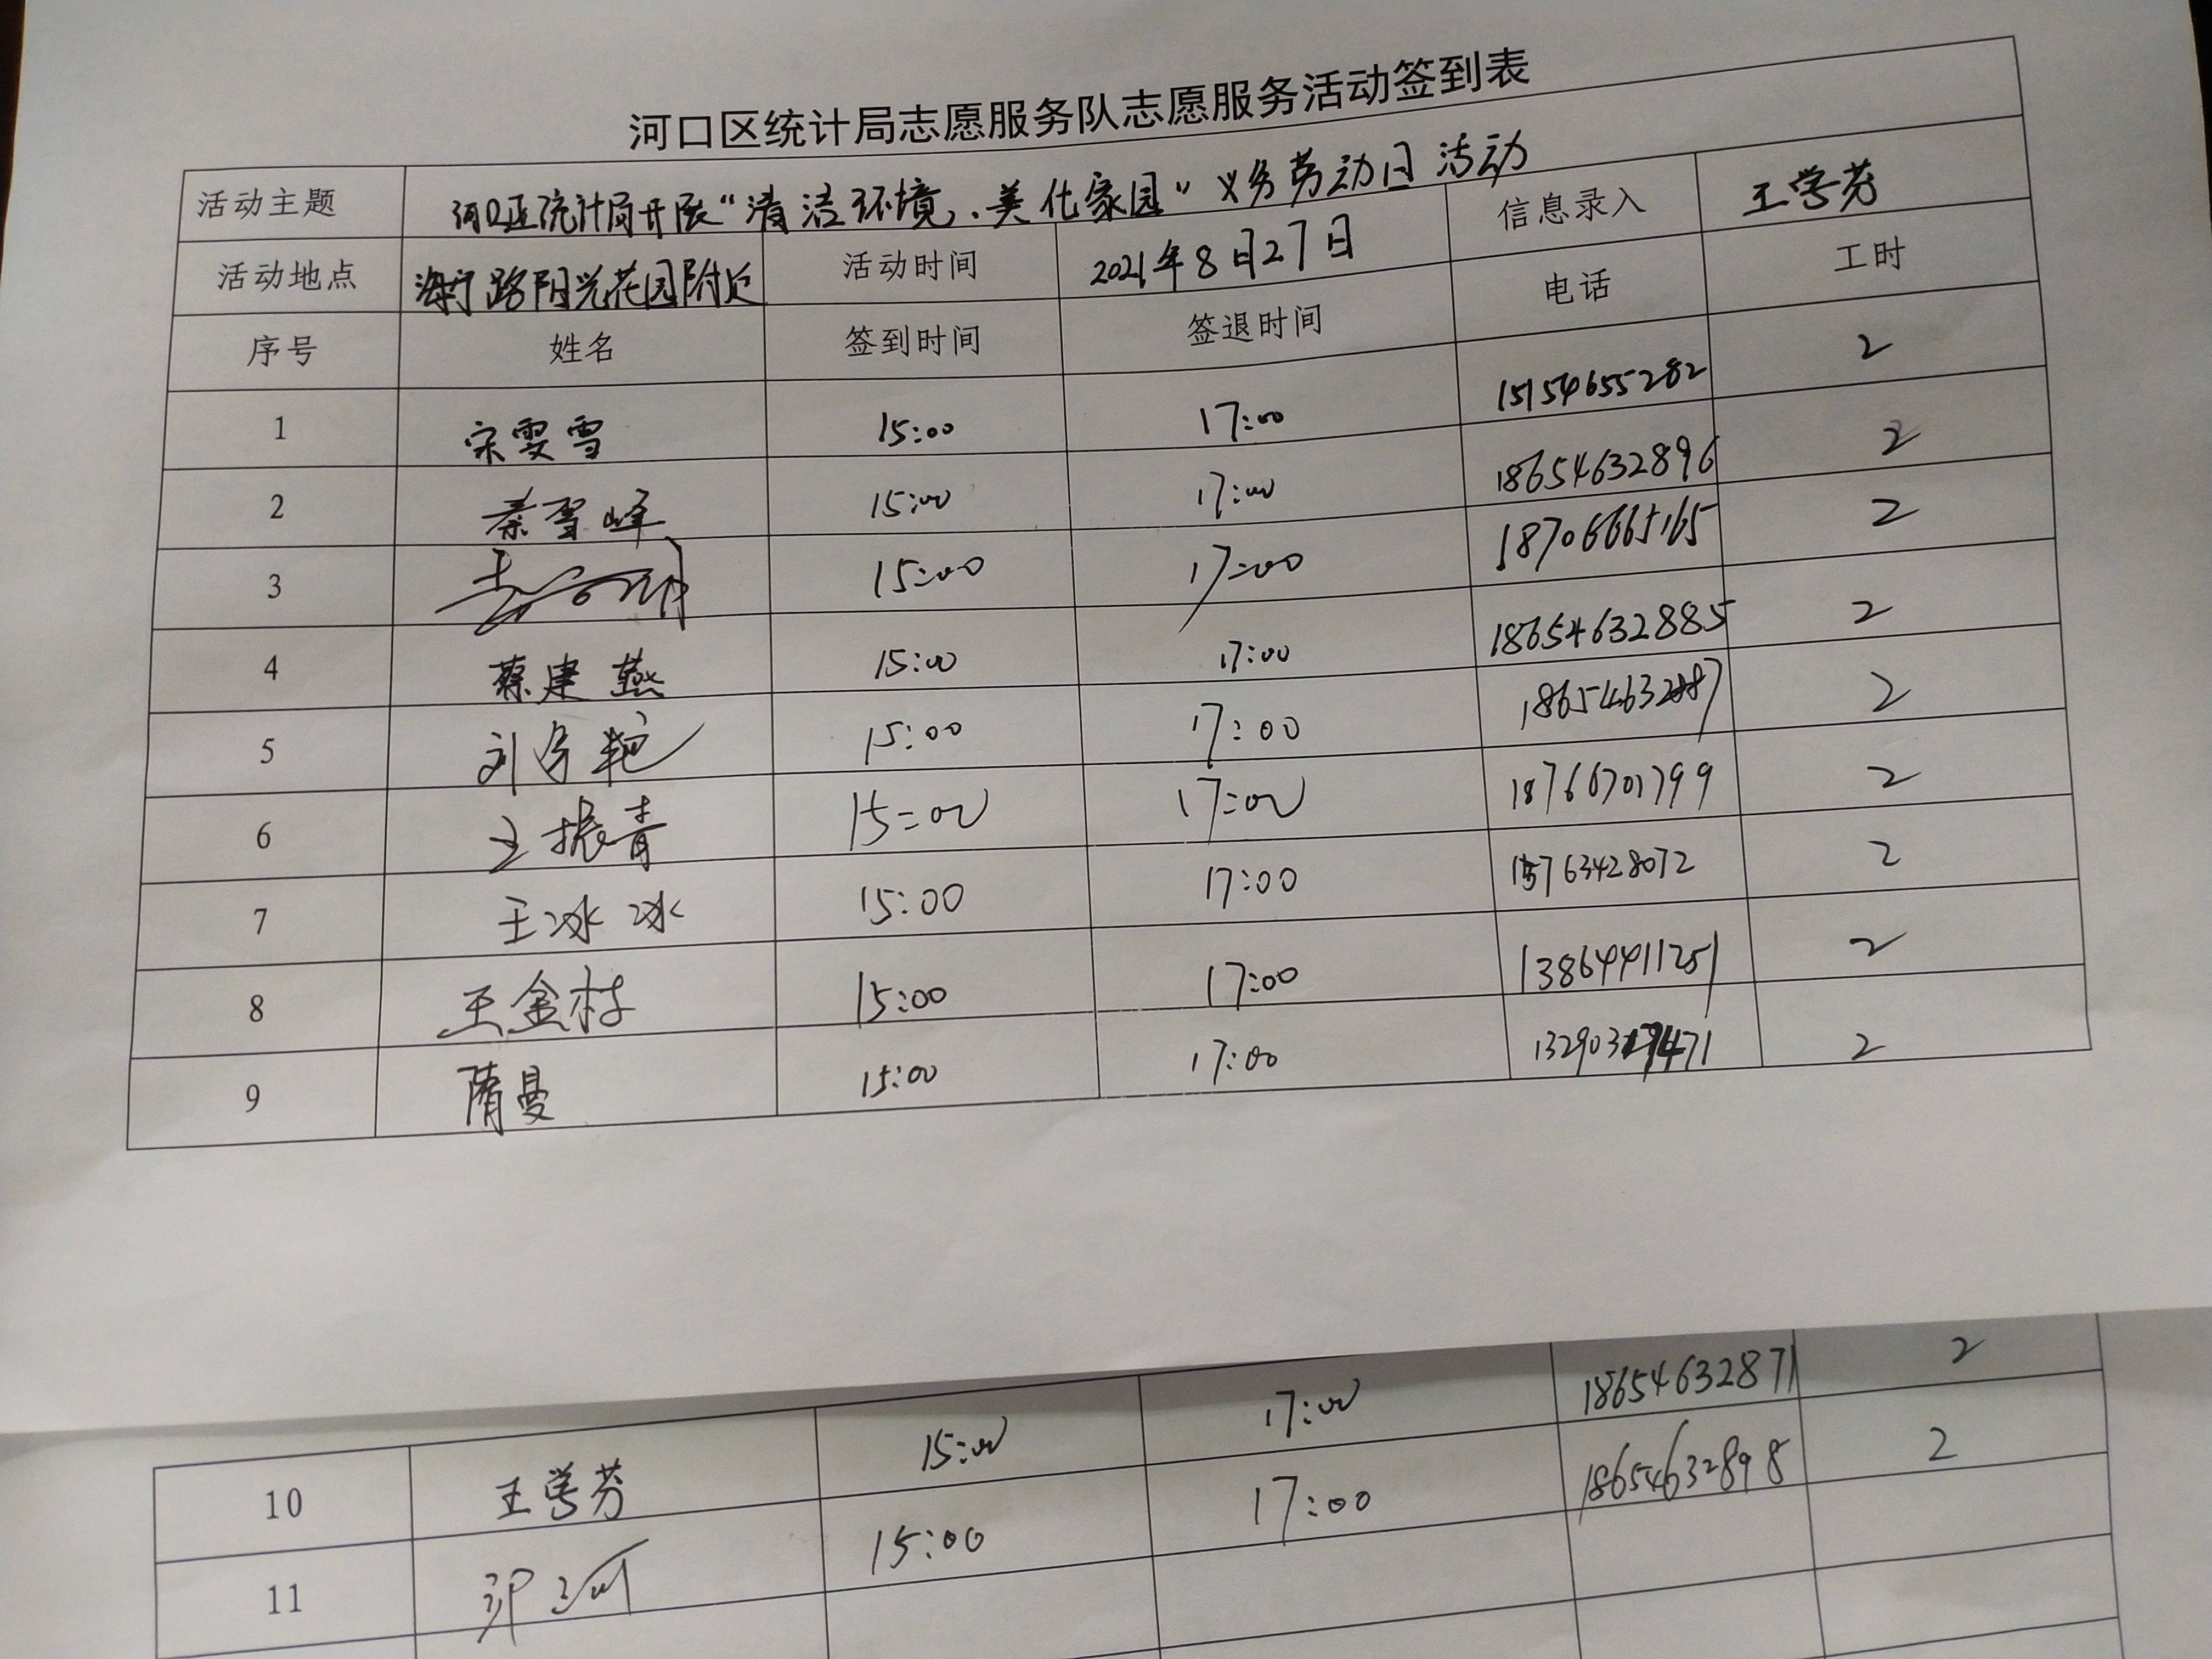 河口区统计局志愿服务队志愿服务活动签到表
活动主题 河口区统计局开展“清洁环境、美化家园”义务劳动日活动 信息录入 王学芬
活动地点 海宁路阳光花园附近 活动时间 2021年8月27日 电话 工时
序号 姓名 签到时间 签退时间
1 宋雯雪 15:00 17:00 15154655282 2
2 秦雪峰 15:00 17:00 18654632896 2
3 15:00 17:00 18706665165 2
4 蔡建燕 15:00 17:00 18654632885 2
5 15:00 17:00 18654632887 2
6 王振青 15:00 17:00 18766701799 2
7 王冰冰 15:00 17:00 15763428072 2
8 王金村 15:00 17:00 13864411251 2
9 隋曼 15:00 17:00 2
10 王学芬 15:00 17:00 18654632871 2
11 15:00 17:00 18654632898 2